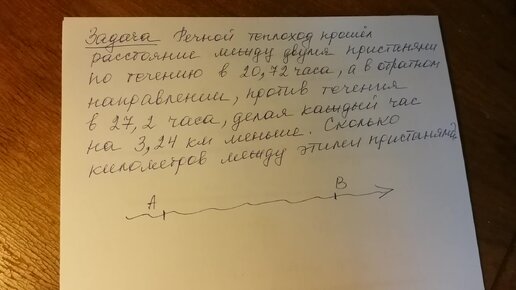 Задача Речной теплоход прошёл
расстояние между двумя пристанями
по течению в 20,72 часа, а в обратном
направлении, против течения
в 27,2 часа, делая каждый час
на 3,24 км меньше. Сколько
километров между этими пристанями?
А В